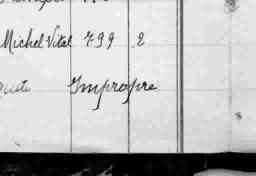 Michel Vital 799 2
Impropre